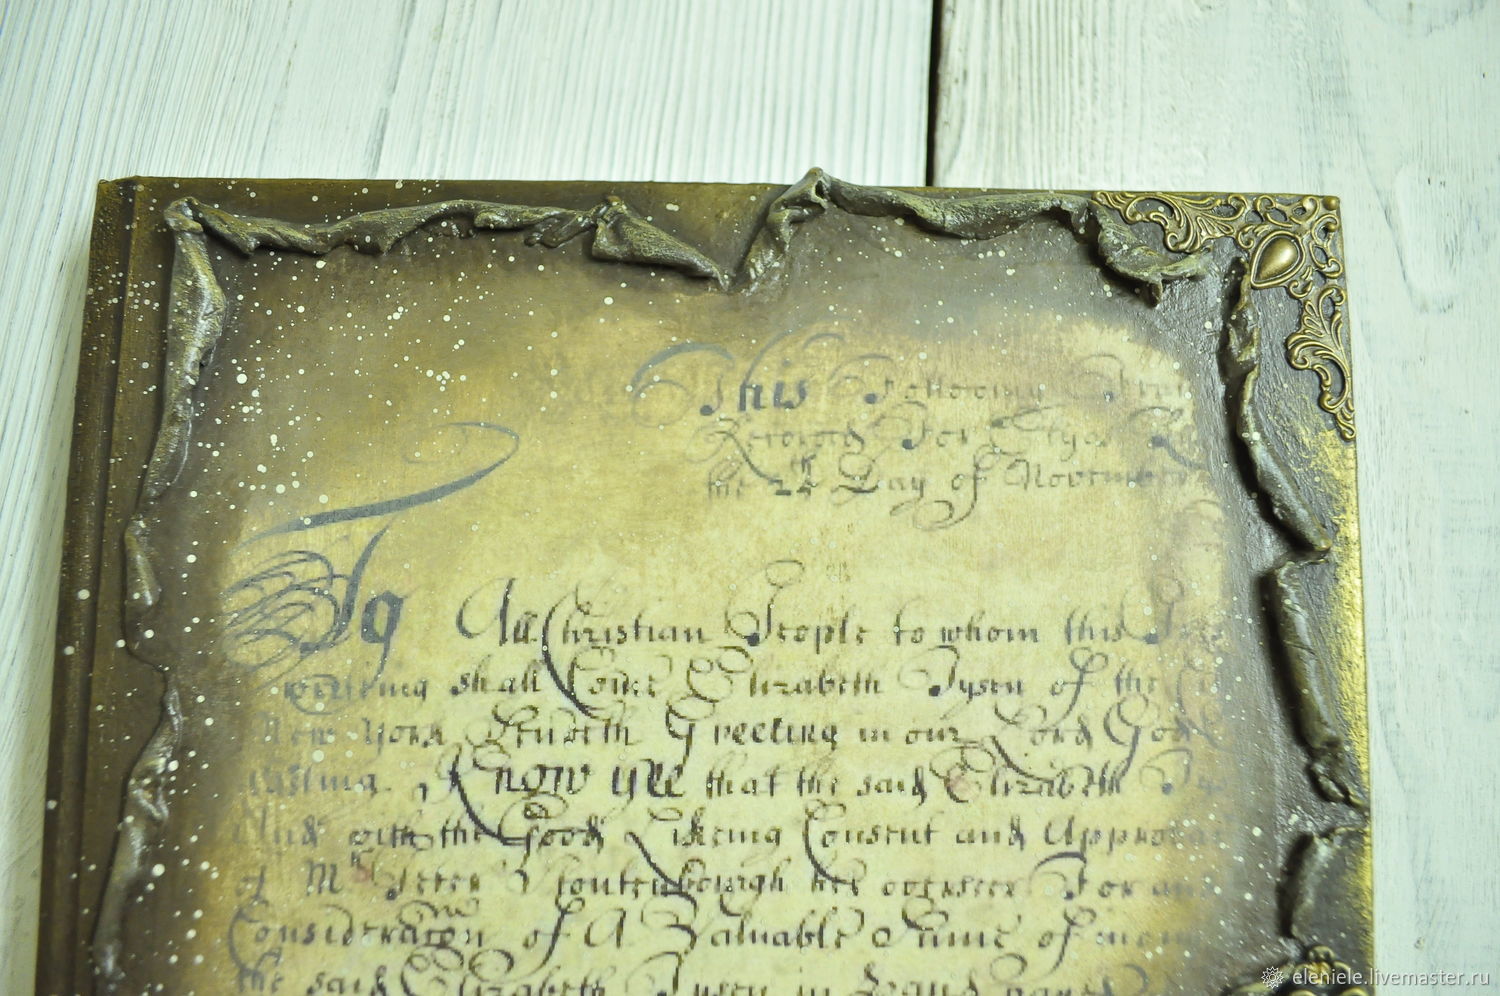 This Following
For
the 24 Day of November
To All Christian People to whom this
writeing shall Come Elizabeth Tysen of the
New York Sendeth Greeting in our Lord God
lasting. Know yee that the said Elizabeth
And with the Good Likeing Consent and
of Mr Peter her overseer For
Consideration of A Valuable Sume of
the said Elizabeth Tysen in hand
eleniele.livemaster.ru